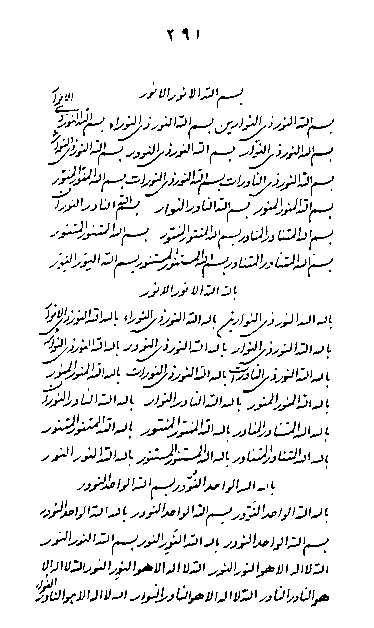 ٢٩١
بسم الله الانور الانور
بسم الله النور ذی النوارین بسم الله النور ذی النوراء بسم الله النور ذی الانوار
بسم الله النور ذی النوار بسم الله النور ذی النوور بسم الله النور ذی
بسم الله النور ذی النوارات بسم الله النور ذی النورات بسم الله المنور المنور
بسم الله المنور المنور بسم الله الناور النوار بسم الله الناور النوران
بسم الله المتناور المناور بسم الله المنتور المنتور بسم الله المتنور المتنور
بسم الله المتناور المتناور بسم الله المستنور المستنور بسم الله النور النور
بالله الله الانور الانور
بالله الله النور ذی النوارین بالله الله النور ذی النوراء بالله الله النور ذی الانوار
بالله الله النور ذی النوار بالله الله النور ذی النوور بالله الله النور ذی
بالله الله النور ذی بالله الله النور ذی النورات بالله الله المنور المنور
بالله الله المنور المنور بالله الله الناور النوار بالله الله الناور
بالله الله المتناور المناور بالله الله المنتور المنتور بالله الله المتنور المتنور
بالله الله المتناور المتناور بالله الله المستنور المستنور بالله الله النور النور
بالله الله الواحد النوور بسم الله الواحد النوور
بالله الله الواحد النوور بسم الله الواحد النوور بالله الله الواحد النوور
بسم الله الواحد النوور بالله الله النور النور بسم الله النور النور
الله لا اله الا هو النور النور الله لا اله الا هو النور النور الله لا اله الا
هو الناور الناور الله لا اله الا هو الناور النوار الله لا اله الا هو الناور النوار